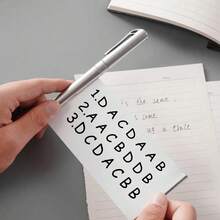 1.DACDAAB
2.AACBDDB
3.DCDACBB
is the same
is same